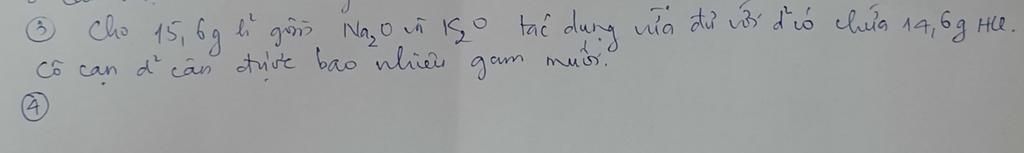 ③ Cho 15,6g h² gồm Na₂O và K₂O tác dụng vừa đủ với d² có chứa 14,6g HCl.
Cô cạn d² cần được bao nhiêu gam muối.
④